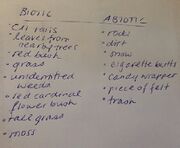 BIOTIC
leaves from
nearby trees
red bush
grass
unidentified
weeds
red cardinal
flower bush
tall grass
moss
ABIOTIC
rocks
dirt
snow
cigarette butts
candy wrapper
piece of felt
trash